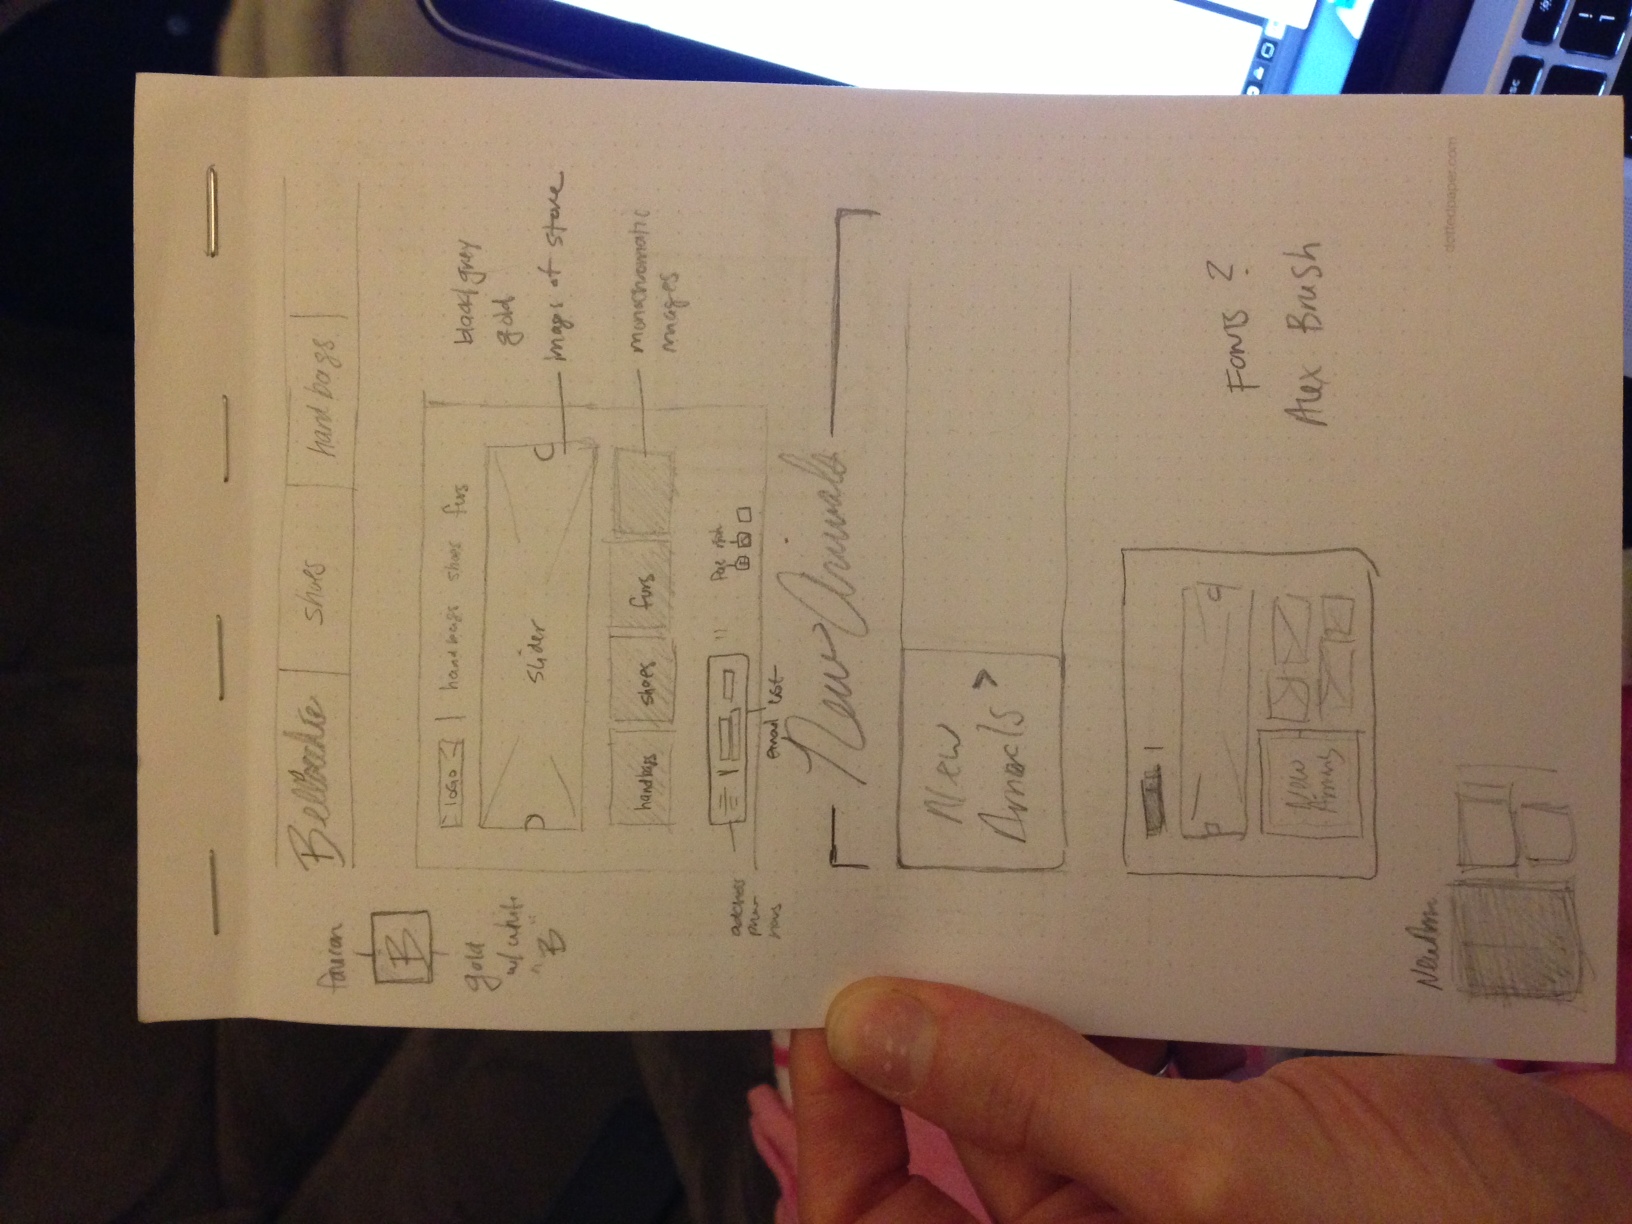 shoes
handbags
favicon
B
gold
w/ white
"B"
LOGO | handbags shoes furs
black/grey
gold
slider
images of store
handbags shoes furs
monochromatic
images
address
email list
New Arrivals
New
Arrivals >
New
Arrivals
Fonts ?
Alex Brush
dottedpaper.com